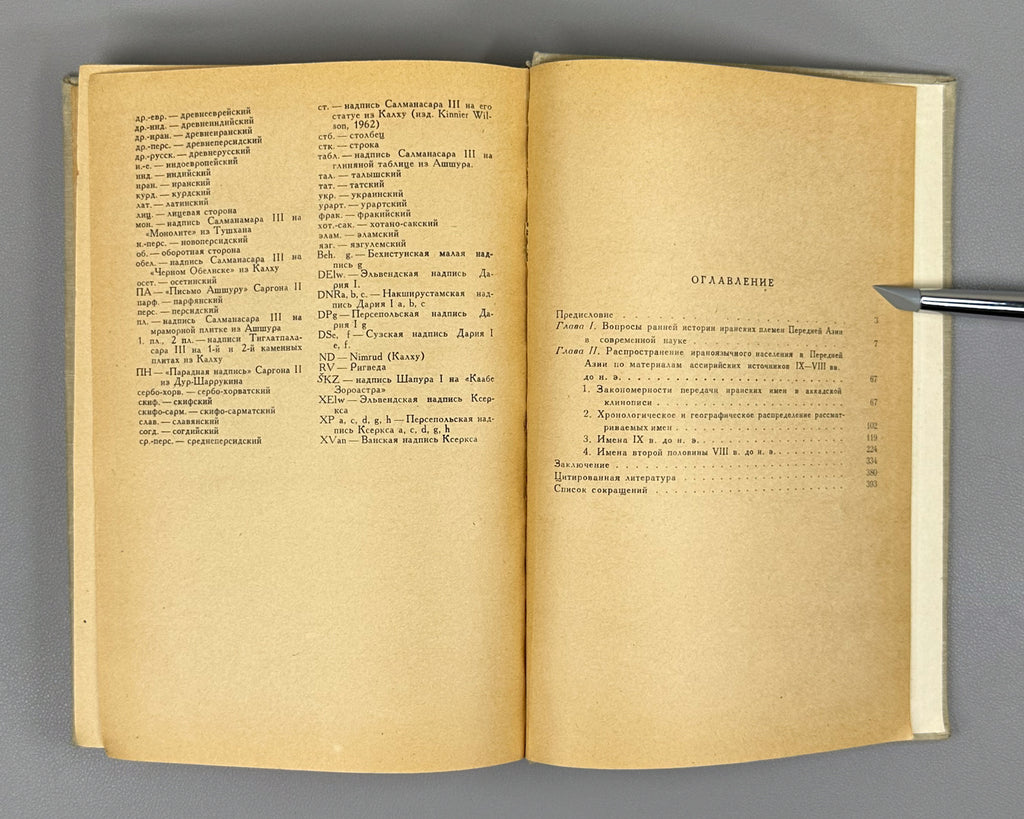 др.-евр. — древнееврейский
др.-инд. — древнеиндийский
др.-иран. — древнеиранский
др.-перс. — древнеперсидский
др.-русск. — древнерусский
и.-е. — индоевропейский
инд. — индийский
иран. — иранский
курд. — курдский
лат. — латинский
лиц. — лицевая сторона
мон. — надпись Салманамара III на
«Монолите» из Тушхана
н.-перс. — новоперсидский
об. — оборотная сторона
обел. — надпись Салманасара III на
«Черном Обелиске» из Калху
осет. — осетинский
ПА — «Письмо Ашшуру» Саргона II
парф. — парфянский
перс. — персидский
пл. — надпись Салманасара III на
мраморной плитке из Ашшура
1. пл., 2 пл. — надписи Тиглатпала-
сара III на 1-й и 2-й каменных
плитах из Калху
ПН — «Парадная надпись» Саргона II
из Дур-Шаррукина
сербо-хорв. — сербо-хорватский
скиф. — скифский
скифо-сарм. — скифо-сарматский
слав. — славянский
согд. — согдийский
ср.-перс. — среднеперсидский
ст. — надпись Салманасара III на его
статуе из Калху (изд. Kinnier Wil-
son, 1962)
стб. — столбец
стк. — строка
табл. — надпись Салманасара III на
глиняной таблице из Ашшура.
тал. — талышский
тат. — татский
укр. — украинский
урарт. — урартский
фрак. — фракийский
хот.-сак. — хотано-сакский
элам. — эламский
язг. — язгулемский
Beh. g. — Бехистунская малая над-
пись g
DElw. — Эльвендская надпись Да-
рия I.
DNRa, b, c. — Накширустамская над-
пись Дария I a, b, c
DPg — Персепольская надпись Да-
рия I g
DSe, f — Сузская надпись Дария I
e, f.
ND — Nimrud (Калху)
RV — Ригведа
ŠKZ — надпись Шапура I на «Каабе
Зороастра»
XElw — Эльвендская надпись Ксер-
кса
XP a, c, d, g, h — Персепольская над-
пись Ксеркса a, c, d, g, h
XVan — Ванская надпись Ксеркса
ОГЛАВЛЕНИЕ
Предисловие . . . . . . . . . . . . . . . . . . 3
Глава I. Вопросы ранней истории иранских племен Передней Азии
в современной науке . . . . . . . . . . . . . . 7
Глава II. Распространение ираноязычного населения в Передней
Азии по материалам ассирийских источников IX—VIII вв.
до н. э. . . . . . . . . . . . . . . . . . . 67
1. Закономерности передачи иранских имен в аккадской
клинописи . . . . . . . . . . . . . . . . 67
2. Хронологическое и географическое распределение рассмат-
риваемых имен . . . . . . . . . . . . . . 102
3. Имена IX в. до н. э. . . . . . . . . . . . . 119
4. Имена второй половины VIII в. до н. э. . . . . . . 224
Заключение . . . . . . . . . . . . . . . . . . 334
Цитированная литература . . . . . . . . . . . . . 380
Список сокращений . . . . . . . . . . . . . . . 393